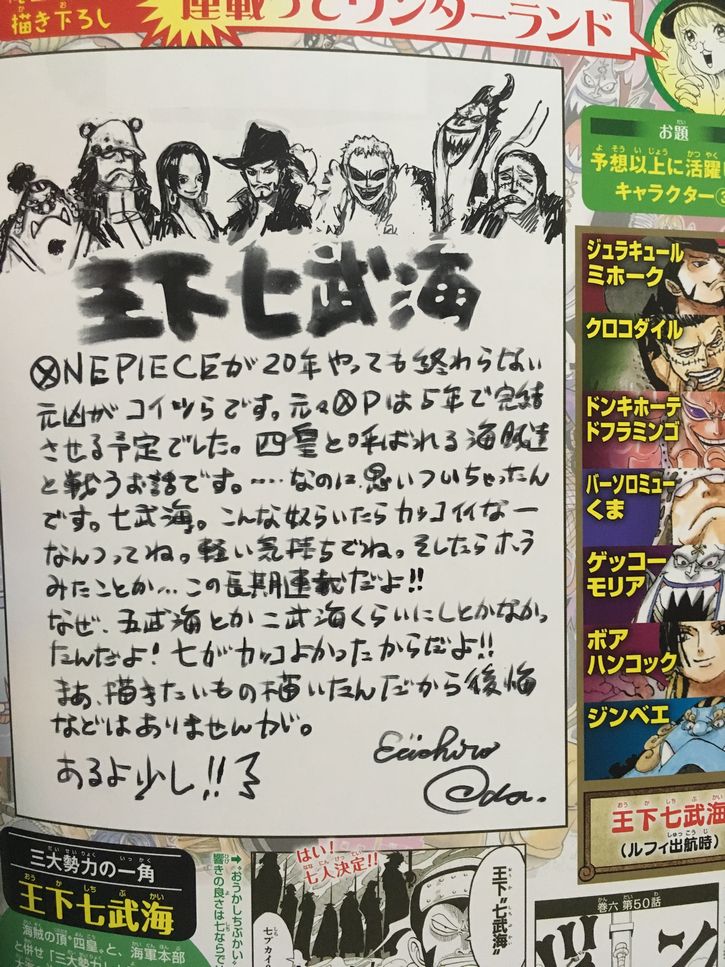 描き下ろし
連載うてワンダーランド
お題
予想以上に活躍
キャラクター③
王下七武海
ⓍNE PIECEが20年やっても終わらない
元凶がコイツらです。元々ⓍPは5年で完結
させる予定でした。四皇と呼ばれる海賊達
と戦うお話です。……なのに、思いついちゃったん
です。七武海。こんな奴らいたらカッコイイなー
なんつってね。軽い気持ちでね。そしたらホラ
みたことか…この長期連載だよ!!
なぜ、五武海とか二武海くらいにしとかなかっ
たんだよ!七がカッコよかったからだよ!!
まあ、描きたいもの描いたんだから後悔
などはありませんが。
あるよ少し!!
Eiichiro
Oda.
ジュラキュール
ミホーク
クロコダイル
ドンキホーテ
ドフラミンゴ
バーソロミュー
くま
ゲッコー
モリア
ボア
ハンコック
ジンベエ
王下七武海
(ルフィ出航時)
三大勢力の一角
王下七武海
海賊の頂“四皇”と、海軍本部
と併せ「三大勢力」
➡“おうかしちぶかい”
響きの良さは七ならで
はい!
七人決定!!
王下“七武海”
七ブカイ
巻六 第50話